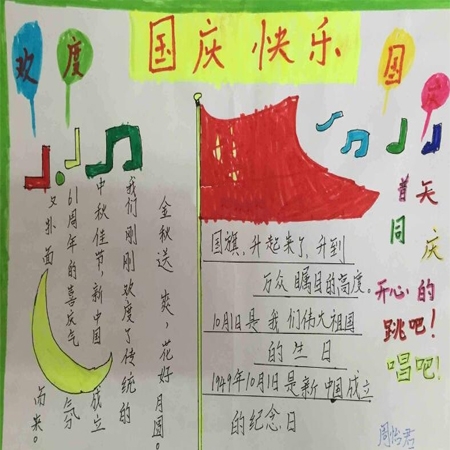 国庆快乐
欢度国
金秋送爽，花好月圆。
我们刚刚欢度了传统的
中秋佳节，新中国成立
61周年的喜庆气氛
又扑面而来。
国旗，升起来了，升到
万众瞩目的高度。
10月1日是我们伟大祖国
的生日
1949年10月1日是新中国成立
的纪念日
普天同庆
开心的
跳吧！
唱吧！
周怡君